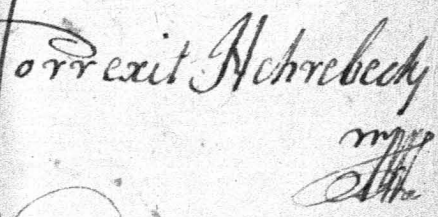 Correxit Hehrebecky
mpp